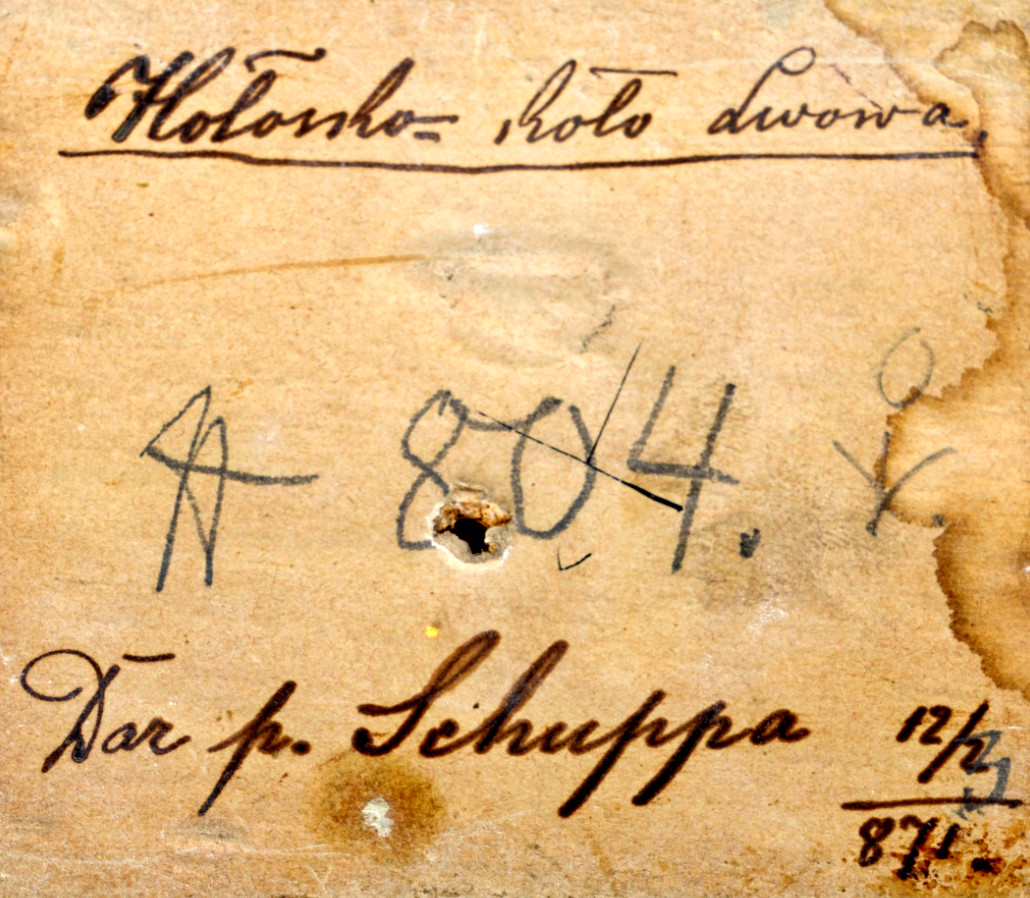 Hołosko= koło Lwowa.
A 804.
Dar p. Schuppa 12/2
871.